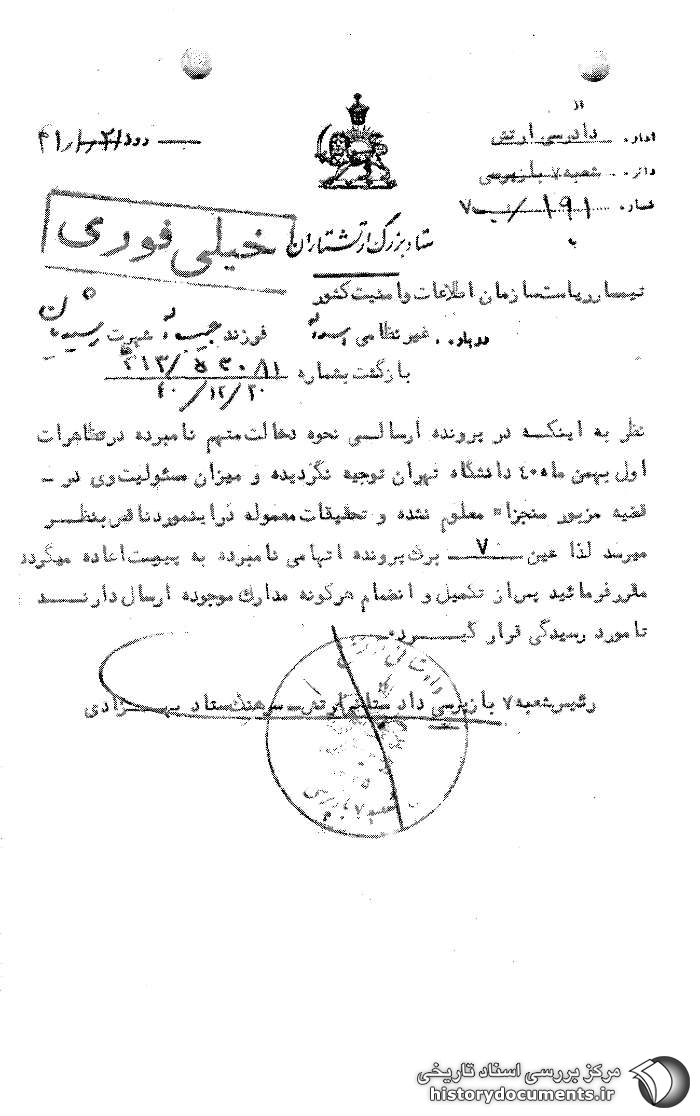 از
اداره دادرسی ارتش
دائره شعبه ۷ بازپرسی
شماره ۱۹۱/ ب ۷
ستاد بزرگ ارتشتاران
خیلی فوری
تیمسار ریاست سازمان اطلاعات و امنیت کشور
درباره غیر نظامی فرزند شهرت
بازگشت بشماره
۴۰/۱۲/۲۰
نظر به اینکه در پرونده ارسالی نحوه دخالت متهم نامبرده در تظاهرات
اول بهمن ماه ۴۰ دانشگاه تهران توجیه نگردیده و میزان مسئولیت وی در –
قضیه مزبور منجزا" معلوم نشده و تحقیقات معموله در اینمورد ناقص بنظر
میرسد لذا عین ۷ برگ پرونده اتهامی نامبرده به پیوست اعاده میگردد
مقرر فرمائید پس از تکمیل و انضمام هرگونه مدارک موجوده ارسال دارند
تا مورد رسیدگی قرار گیرد.
رئیس شعبه ۷ بازپرسی دادستانی ارتش – سرهنگ ستاد بهزادی
شعبه ۷ بازپرسی
مرکز بررسی اسناد تاریخی
historydocuments.ir